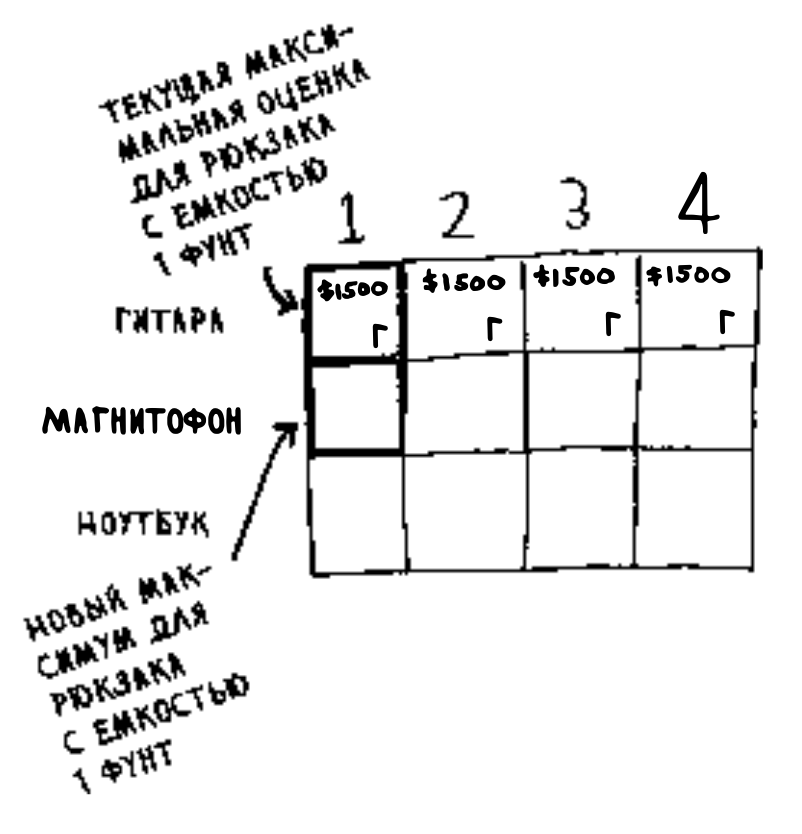 ТЕКУЩАЯ МАКСИ-
МАЛЬНАЯ ОЦЕНКА
ДЛЯ РЮКЗАКА
С ЕМКОСТЬЮ
1 ФУНТ
1 2 3 4
ГИТАРА
$1500 $1500 $1500 $1500
Г Г Г Г
МАГНИТОФОН
НОУТБУК
НОВЫЙ МАК-
СИМУМ ДЛЯ
РЮКЗАКА
С ЕМКОСТЬЮ
1 ФУНТ